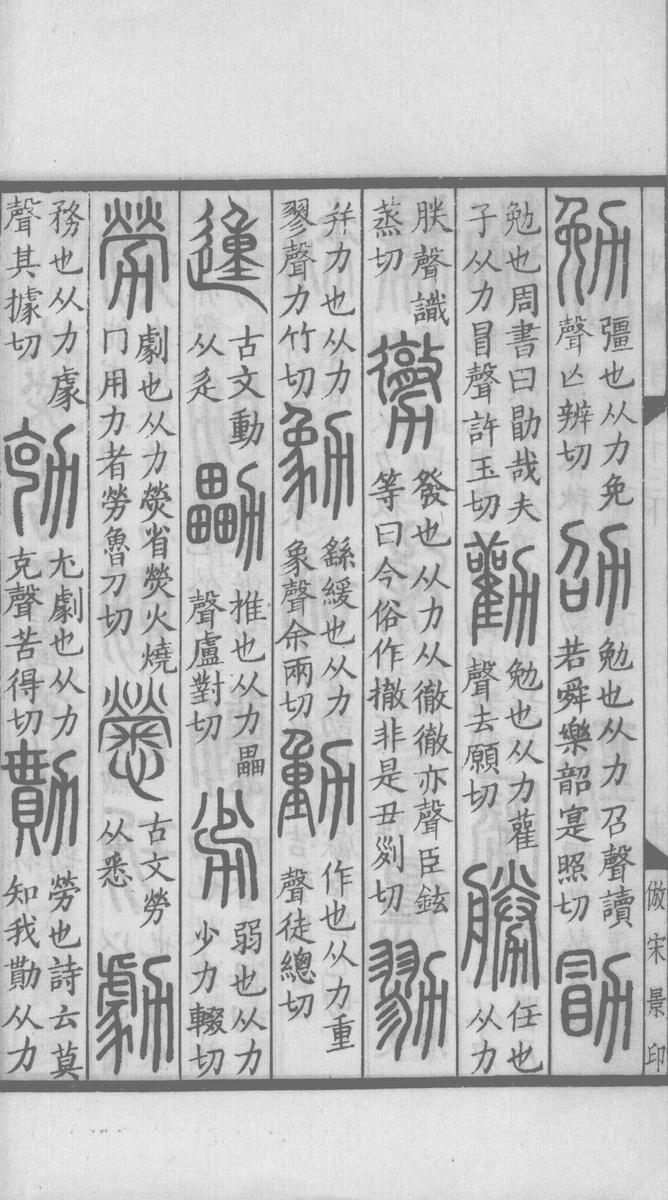 勉彊也从力免聲亾辨切劭勉也从力召聲讀若舜樂韶寔照切勖
勉也周書曰勖哉夫子从力冒聲許玉切勸勉也从力雚聲去願切勝任也从力
朕聲識蒸切勶發也从力从徹徹亦聲臣鉉等曰今俗作撤非是丑列切勠
幷力也从力翏聲力竹切勨繇緩也从力象聲余兩切動作也从力重聲徒總切
古文動从辵㔣推也从力畾聲盧對切劣弱也从力少力輟切
勞劇也从力熒省熒火燒冂用力者勞魯刀切古文勞从悉勮
務也从力豦聲其據切勀尤劇也从力克聲苦得切勩勞也詩云莫知我勩从力
倣宋景印